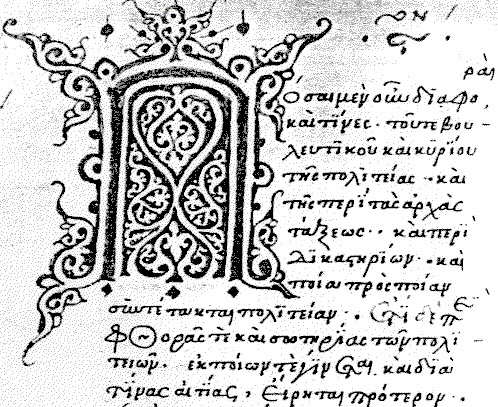 Πόσαι μὲν οὖν διαφο
ραὶ
καὶ τίνες · τοῦ τε βου-
λευτικοῦ καὶ κυρίου
τῆς πολιτείας · καὶ
τῆς περὶ τὰς ἀρχὰς
τάξεως · καὶ περὶ
δικαστηρίων · καὶ
ποία πρὸς ποίαν
συντέτακται πολιτείαν · ἔτι δὲ περὶ
φθορᾶς τε καὶ σωτηρίας τῶν πολι-
τειῶν · ἐκ ποίων τε γίνεται καὶ διὰ
τίνας αἰτίας, εἴρηται πρότερον ·